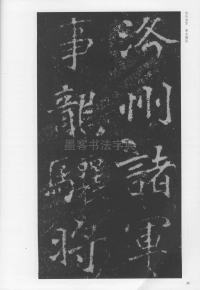 洛州諸軍
事龍驤將
墨客书法字